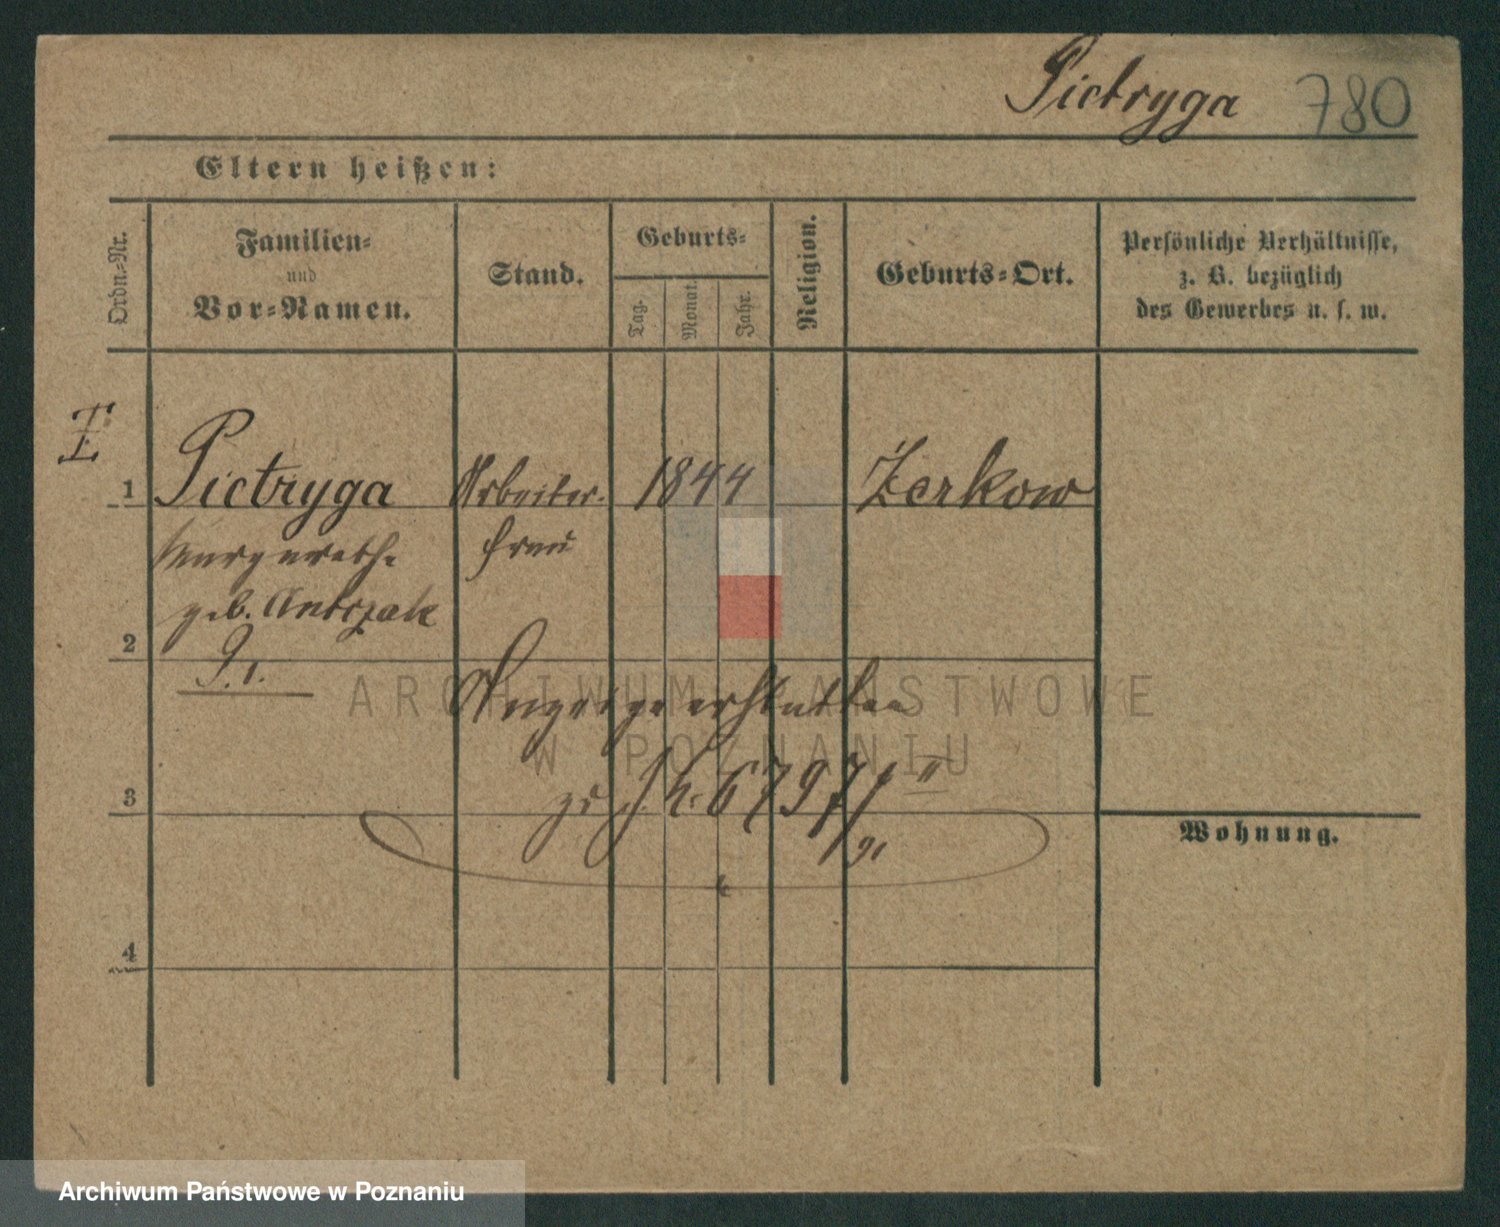 Pietryga 780
Eltern heißen:
Ordn.-Nr.
Familien-
und
Vor-Namen.
Stand.
Geburts-
Tag.
Monat.
Jahr.
Religion.
Geburts-Ort.
Persönliche Verhältnisse,
z. B. bezüglich
des Gewerbes u. s. w.
1 Pietryga Arbeiter- 1844 Zerkow
Margarethe frau
geb. Antczak
2
Anzeige erstattet
zu J. N. 6797/ II
91
3
Wohnung.
4
ARCHIWUM PAŃSTWOWE
W POZNANIU
Archiwum Państwowe w Poznaniu